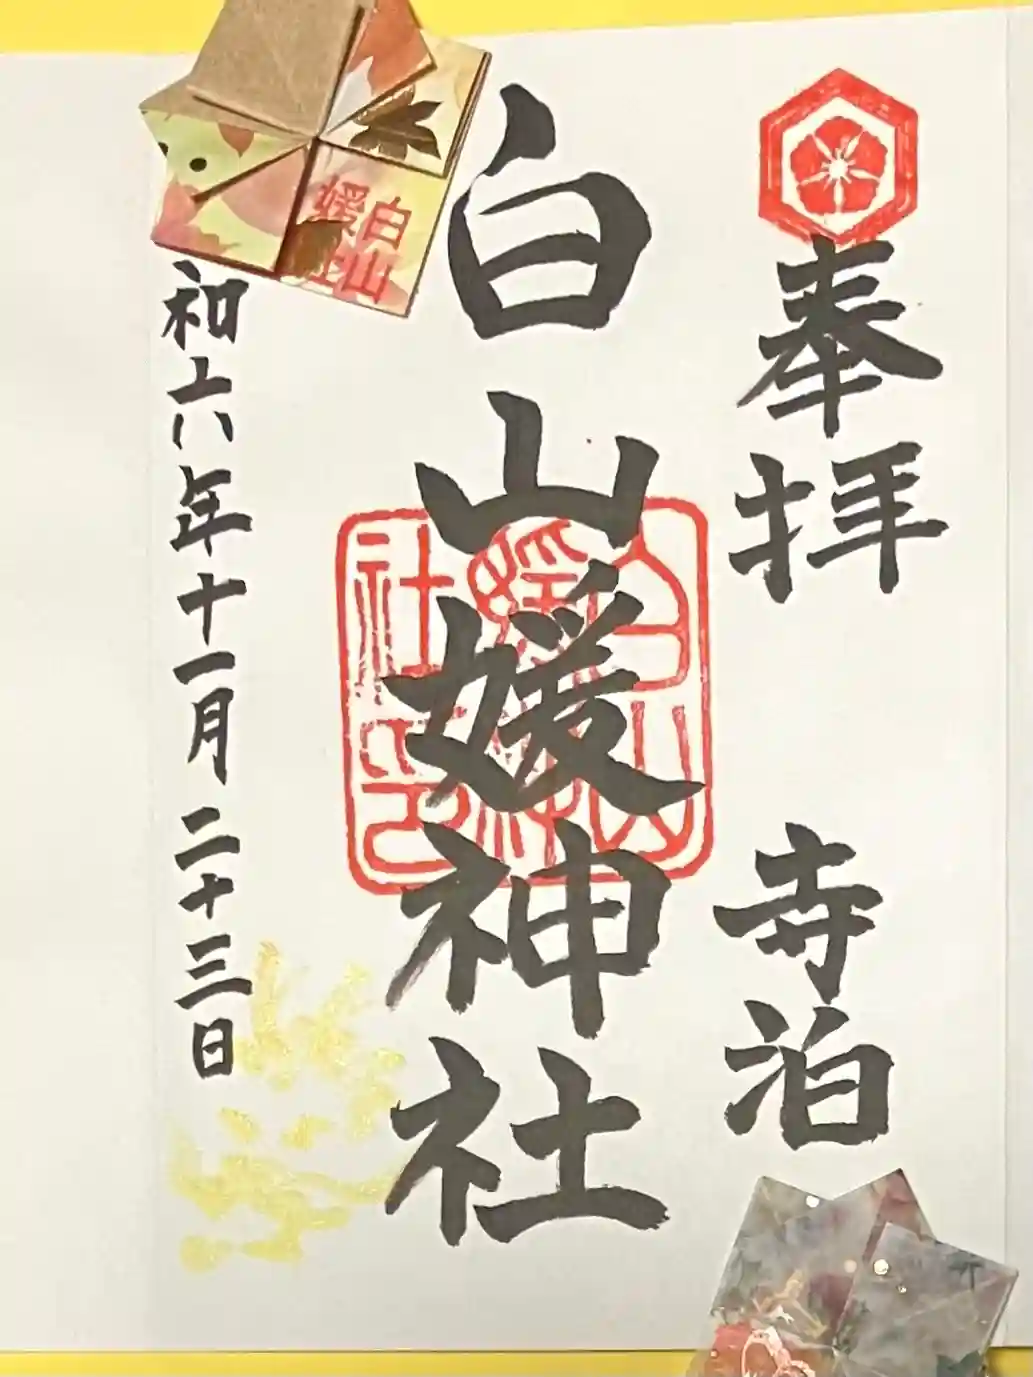 奉拝 寺泊
白山媛神社
和六年十一月二十三日
白山
媛社
白山
媛神
社印